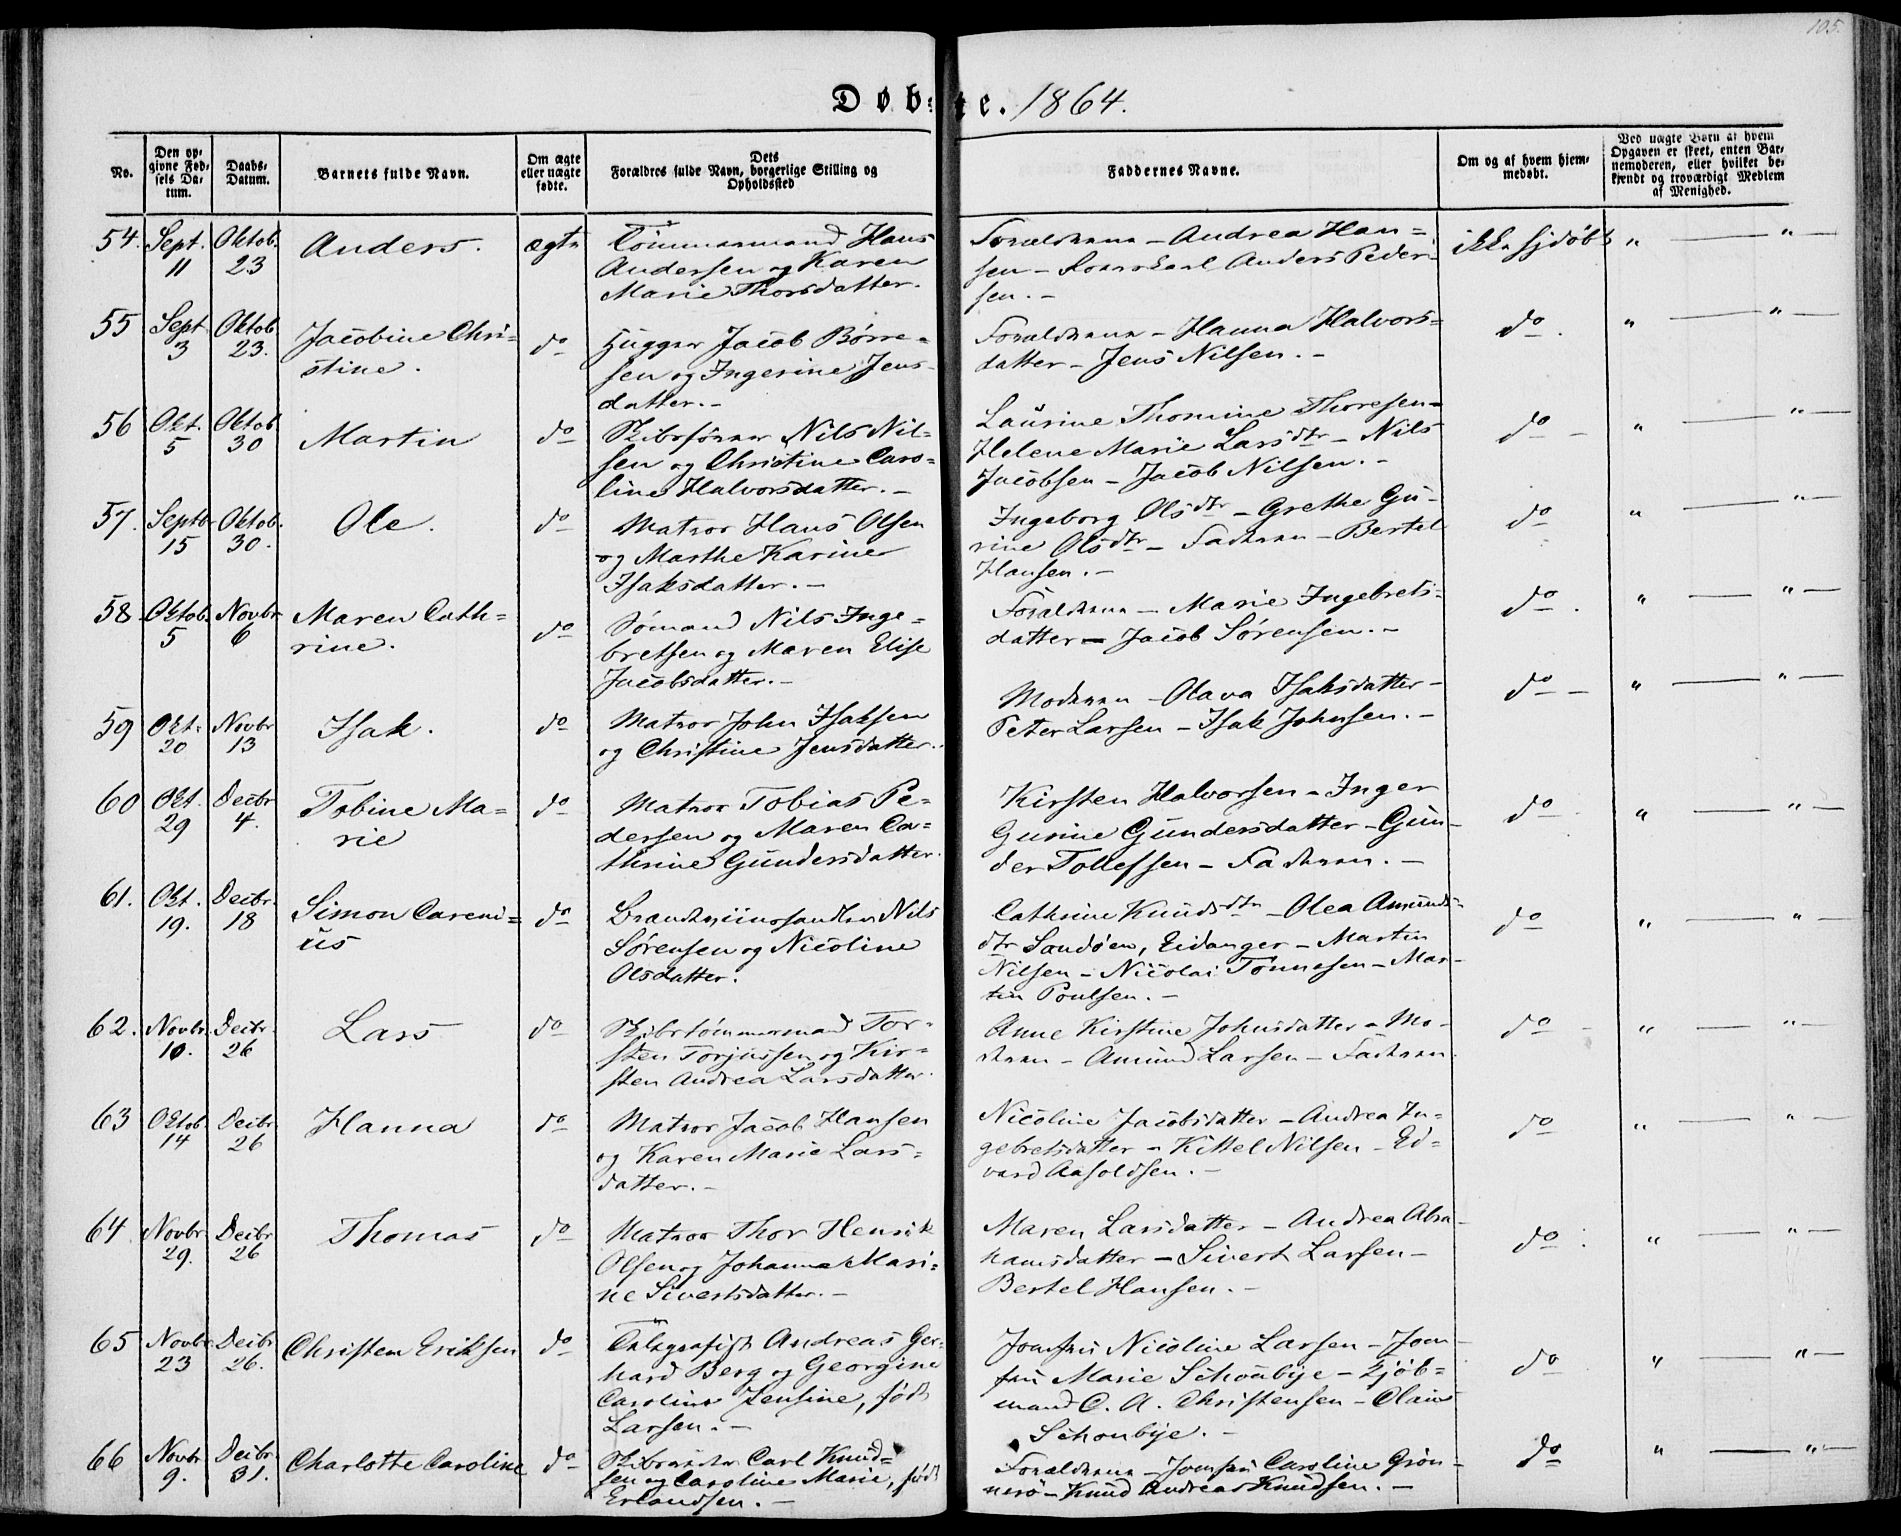 105.
Døbte. 1864.
No.
Den opgivne Fødsels Datum.
Daabs-Datum.
Barnets fulde Navn.
Om ægte eller uægte fødte.
Dets Forældres fulde Navn, borgerlige Stilling og Opholdssted
Faddernes Navne.
Om og af hvem hjemmedøbt.
Ved uægte Børn at hvem Opgaven er skeet, enten Barnemoderen, eller hvilket bekjendt og troværdigt Medlem af Menighed.
54. Sept. 11 Oktob. 23 Anders. ægte
Tömmermand Hans
Andersen og Karen
Marie Thorsdatter.
Forældrene - Andrea Han=
sen - Anders Peder=
sen. -
ikke hjdøbt " — " —
55 Sept 3 Oktob 23. Jacobine Chri=
stine. do
Hugger Jacob Børre=
sen og Ingerine Jens=
datter. -
Forældrene - Hanna Halvors=
datter - Jens Nilsen. -
do. " — " —
56 Okt. 5 Oktob 30 Martin do
Skibsfører Nils Nil=
sen og Christine Caro=
line Halvorsdatter. -
Laurine Thomine Thoresen -
Helene Marie Larsdtr - Nils
Jacobsen - Jacob Nilsen. -
do - " — " —
57. Septbr 15 Oktob. 30. Ole. do
Matros Hans Olsen
og Marthe Karine
Isaksdatter. -
Ingeborg Olsdtr - Grethe Gu=
rine Olsdtr - Faderen - Bertel
Hansen. -
do " — " —
58 Oktob. 5 Novbr 6 Maren Cath=
rine. do
Sømand Nils Inge=
bretsen og Maren Elise
Jacobsdatter. -
Forældrene - Marie Ingebrets=
datter - Jacob Sørensen. -
do. " — " —
59 Okt. 20 Novbr 13 Isak. do
Matros John Isaksen
og Christine Jensdatter.
Moderen - Olava Isaksdatter -
Peter Larsen - Isak Johnsen. -
do - " — " —
60 Okt. 29 Decbr 4. Tobine Ma=
rie do
Matros Tobias Pe=
dersen og Maren Ca=
thrine Gundersdatter.
Kirsten Halvorsen - Inger
Gurine Gundersdatter - Gun=
der Tollefsen - Faderen. -
do " — " —
61. Okt. 19. Decbr. 18 Simon Careni=
us do
Nils
Sørensen og Nicoline
Olsdatter.
Cathrine Knudsdtr - Olea Amunds=
dtr Sandøen, Eidanger - Martin
Nilsen - Nicolai Tønnesen - Mar=
tin Poulsen. -
do " — " —
62. Novbr. 10. Decbr. 26 Lars do
Skibstømmermand Tor=
sten Torjussen og Kir=
sten Andrea Larsdatter.
Anne Kirstine Johnsdatter - Mo=
deren - Amund Larsen - Faderen.
do - " — " —
63 Oktob 14 Decbr 26 Hanna do
Matros Jacob Hansen
og Karen Marie Lars=
datter. -
Nicoline Jacobsdatter - Andrea In=
gebretsdatter - Kittel Nilsen - Ed=
vard Aasoldsen. -
do " — " —
64 Novbr 29. Decbr 26 Thomas do
Matros Thor Henrik
Olsen og Johanne Mari=
ne Sivertsdatter. -
Maren Larsdatter - Andrea Abra=
hamsdatter - Sivert Larsen -
Bertel Hansen. -
do. " — " —
65 Novbr 23 Decbr 26. Christen Eriksen do
Telegrafist Andreas Ger=
hard Berg og Georgine
Caroline Jensine, født
Larsen. -
Jomfru Nicoline Larsen - Jom=
fru Marie Schonbye - Kjøb=
mand C. A. Christensen - Claus
Schonbye. -
do " — " —
66 Novbr 9. Decbr 31. Charlotte Caroline do
Skibsreder Carl Knud=
sen og Caroline Marie, født
Erlandsen. -
Forældrene - Jomfru Caroline Grön=
nerö - Knud Andreas Knudsen. -
do " — " —